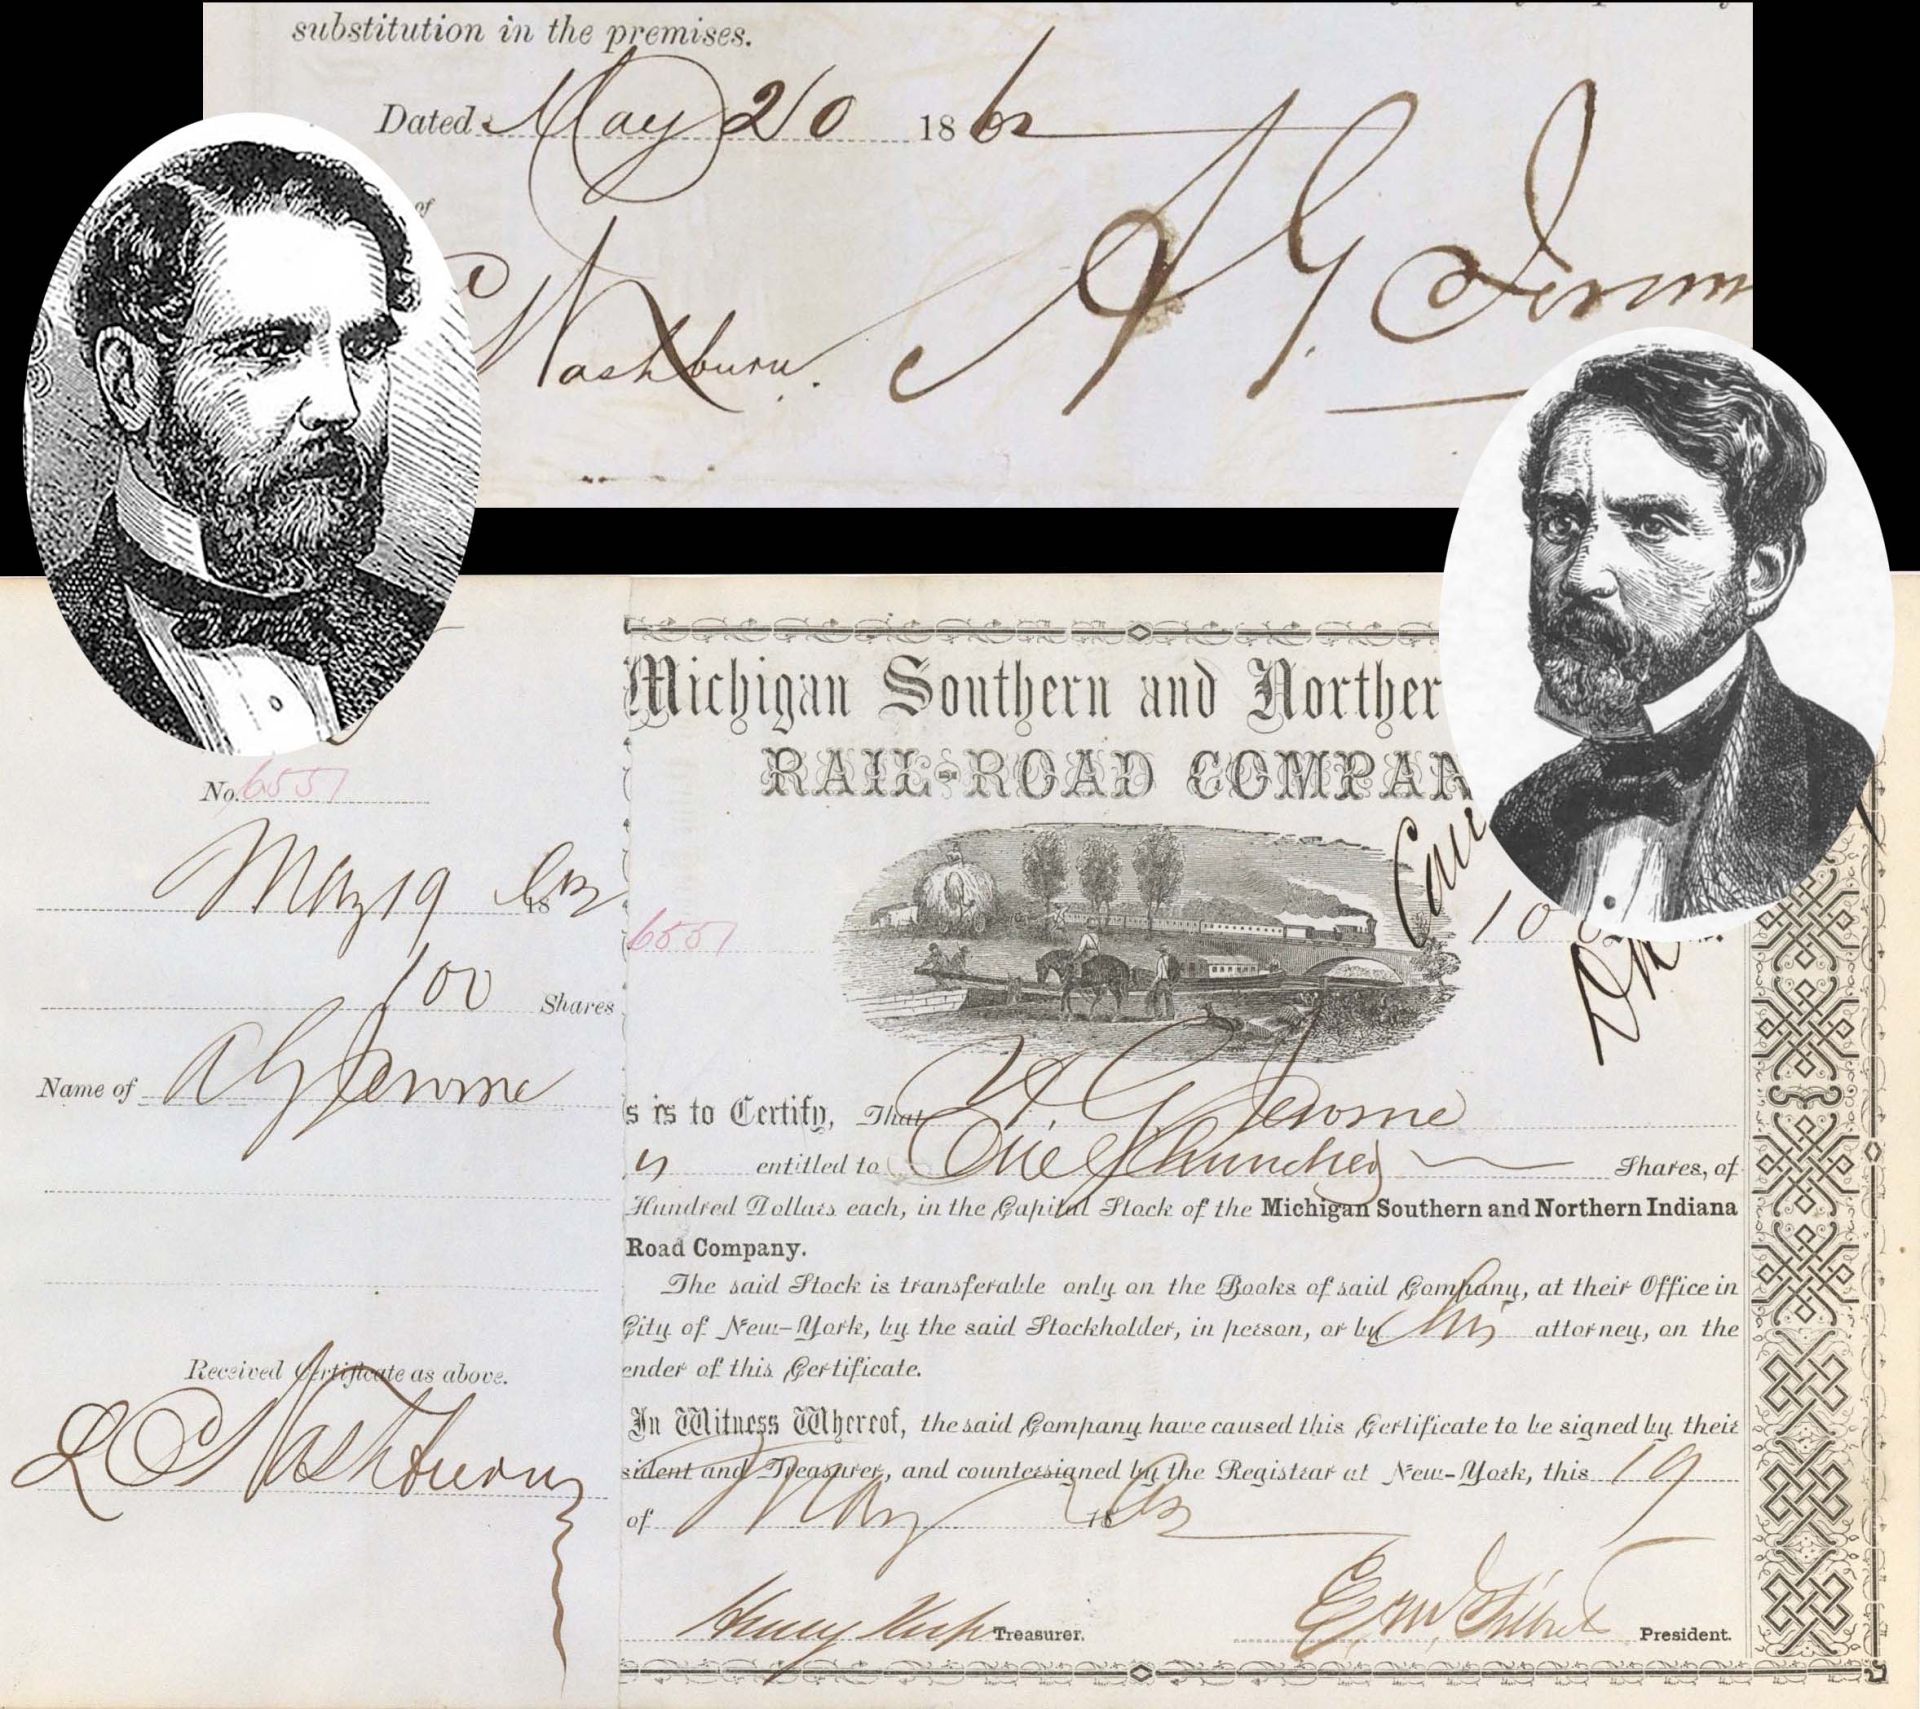 substitution in the premises.
Dated May 20 1862
of
C Washburn. A G Jerom
Michigan Southern and Norther
RAIL-ROAD COMPAN
No. 6551
May 19 1862
6551
100 Shares
Name of A G Jerome
s is to Certify, That A G Jerome
is entitled to One Hundred Shares, of
Hundred Dollars each, in the Capital Stock of the Michigan Southern and Northern Indiana
Road Company.
The said Stock is transferable only on the Books of said Company, at their Office in
City of New-York, by the said Stockholder, in person, or by his attorney, on the
ender of this Certificate.
Received Certificate as above.
L C Washburn
In Witness Whereof, the said Company have caused this Certificate to be signed by their
sident and Treasurer, and countersigned by the Registrar at New-York, this 19
of May 1862
Henry Keep Treasurer.
President.